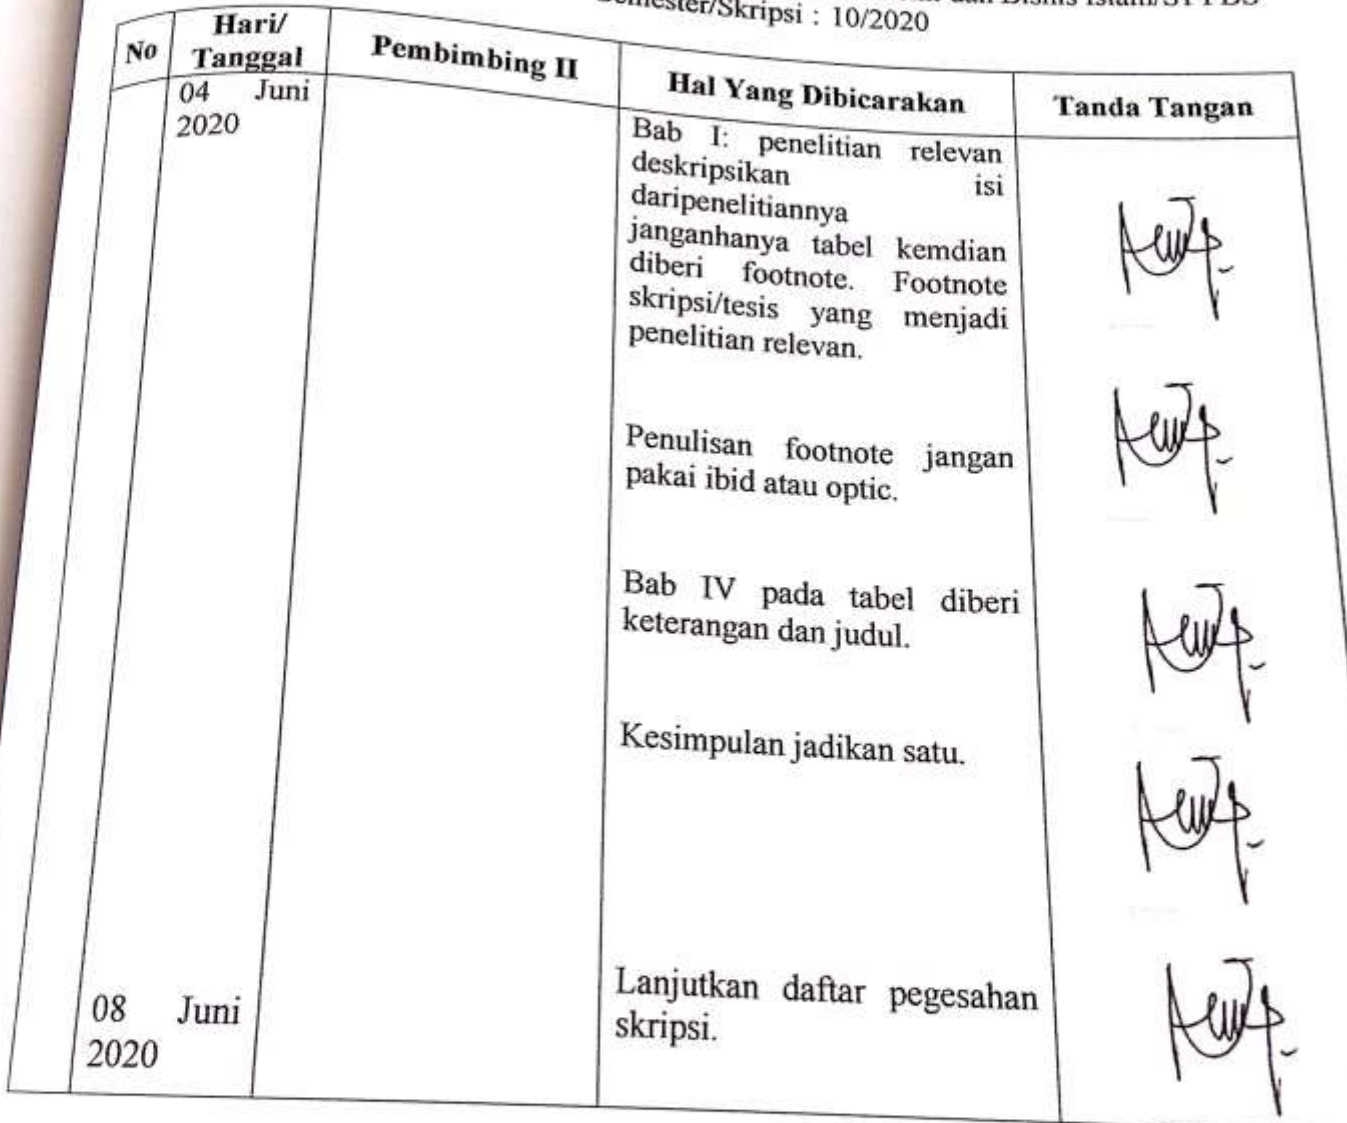 dan Bisnis Islam/S1 PBS
Semester/Skripsi : 10/2020
No
Hari/
Tanggal
Pembimbing II
Hal Yang Dibicarakan
Tanda Tangan
04 Juni
2020
Bab I: penelitian relevan
deskripsikan isi
daripenelitiannya
janganhanya tabel kemdian
diberi footnote. Footnote
skripsi/tesis yang menjadi
penelitian relevan.
Penulisan footnote jangan
pakai ibid atau optic.
Bab IV pada tabel diberi
keterangan dan judul.
Kesimpulan jadikan satu.
08 Juni
2020
Lanjutkan daftar pegesahan
skripsi.